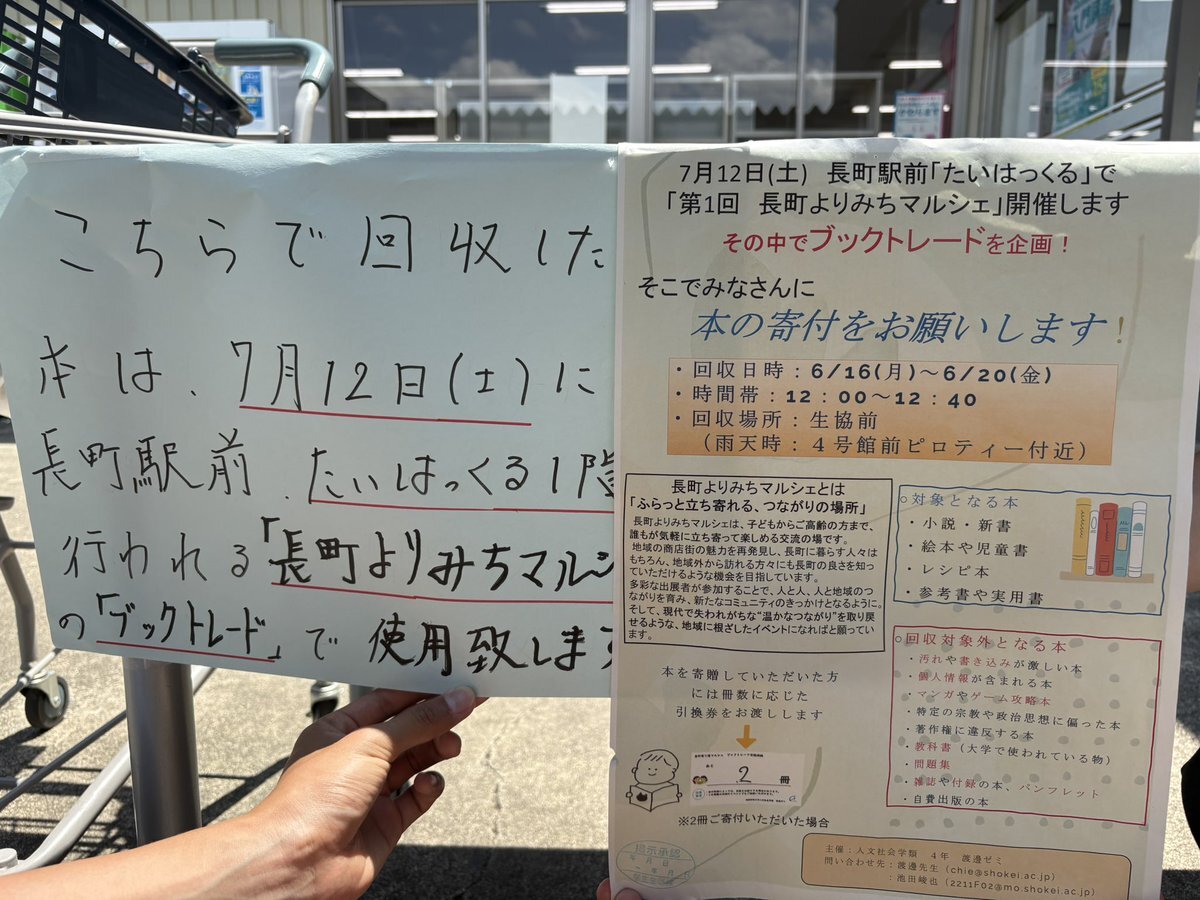 こちらで回収した
本は、7月12日(土)に
長町駅前、たいはっくる1階
行われる「長町よりみちマルシ
の「ブックトレード」で使用致します
7月12日(土) 長町駅前「たいはっくる」で
「第1回 長町よりみちマルシェ」開催します
その中でブックトレードを企画！
そこでみなさんに
本の寄付をお願いします！
・回収日時：6/16(月)～6/20(金)
・時間帯：12：00～12：40
・回収場所：生協前
（雨天時：４号館前ピロティー付近）
長町よりみちマルシェとは
「ふらっと立ち寄れる、つながりの場所」
長町よりみちマルシェは、子どもからご高齢の方まで、
誰もが気軽に立ち寄って楽しめる交流の場です。
地域の商店街の魅力を再発見し、長町に暮らす人々は
もちろん、地域外から訪れる方々にも長町の良さを知っ
ていただけるような機会を目指しています。
多彩な出展者が参加することで、人と人、人と地域のつ
ながりを育み、新たなコミュニティのきっかけとなるように。
そして、現代で失われがちな“温かなつながり”を取り戻
せるような、地域に根ざしたイベントになればと願ってい
ます。
○対象となる本
・小説・新書
・絵本や児童書
・レシピ本
・参考書や実用書
○回収対象外となる本
・汚れや書き込みが激しい本
・個人情報が含まれる本
・マンガやゲーム攻略本
・特定の宗教や政治思想に偏った本
・著作権に違反する本
・教科書（大学で使われている物）
・問題集
・雑誌や付録の本、パンフレット
・自費出版の本
本を寄贈していただいた方
には冊数に応じた
引換券をお渡しします
2 冊
※2冊ご寄付いただいた場合
主催：人文社会学類 4年 渡邊ゼミ
問い合わせ先：渡邊先生（chie@shokei.ac.jp）
：池田峻也（2211F02@mo.shokei.ac.jp）